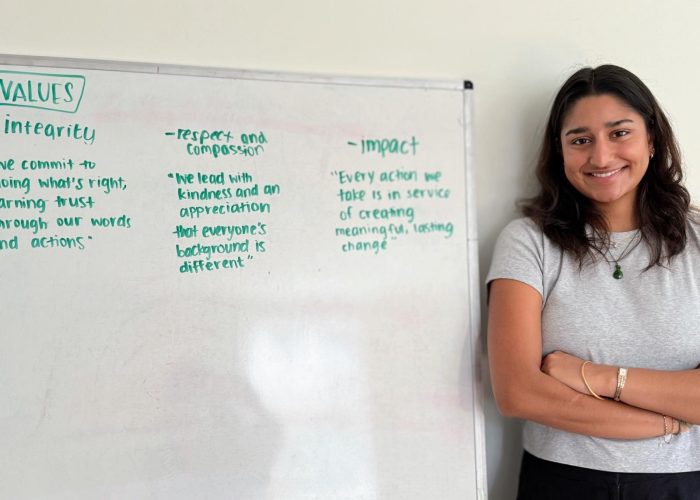 VALUES
integrity
we commit to
oing what's right,
arning trust
hrough our words
nd actions"
- respect and
compassion
"We lead with
kindness and an
appreciation
that everyone's
background is
different"
- impact
"Every action we
take is in service
of creating
meaningful, lasting
change"